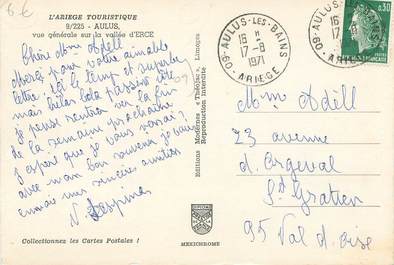 6-6
L'ARIEGE TOURISTIQUE
9/225 - AULUS,
vue générale sur la vallée d'ERCE
Chère Mme Adell
Merci pour votre aimable
lettre. Ici le temps est superbe
mais hélas tout passe vite
je pense rentrer vers la fin
de la semaine prochaine
j'espère que je vous
avec mon bon souvenir je vous
envoie mes sincères amitiés
Collectionnez les Cartes Postales !
Editions Modernes « Théojac » Limoges
Reproduction Interdite
MEXICHROME
09-AULUS-LES-BAINS
16 H
17-8
1971
ARIEGE
09-AULUS
16
17
ARIEGE
0,30
Mme Adell
23 avenue
d'Orgeval
St Gratien
95 Val d'oise